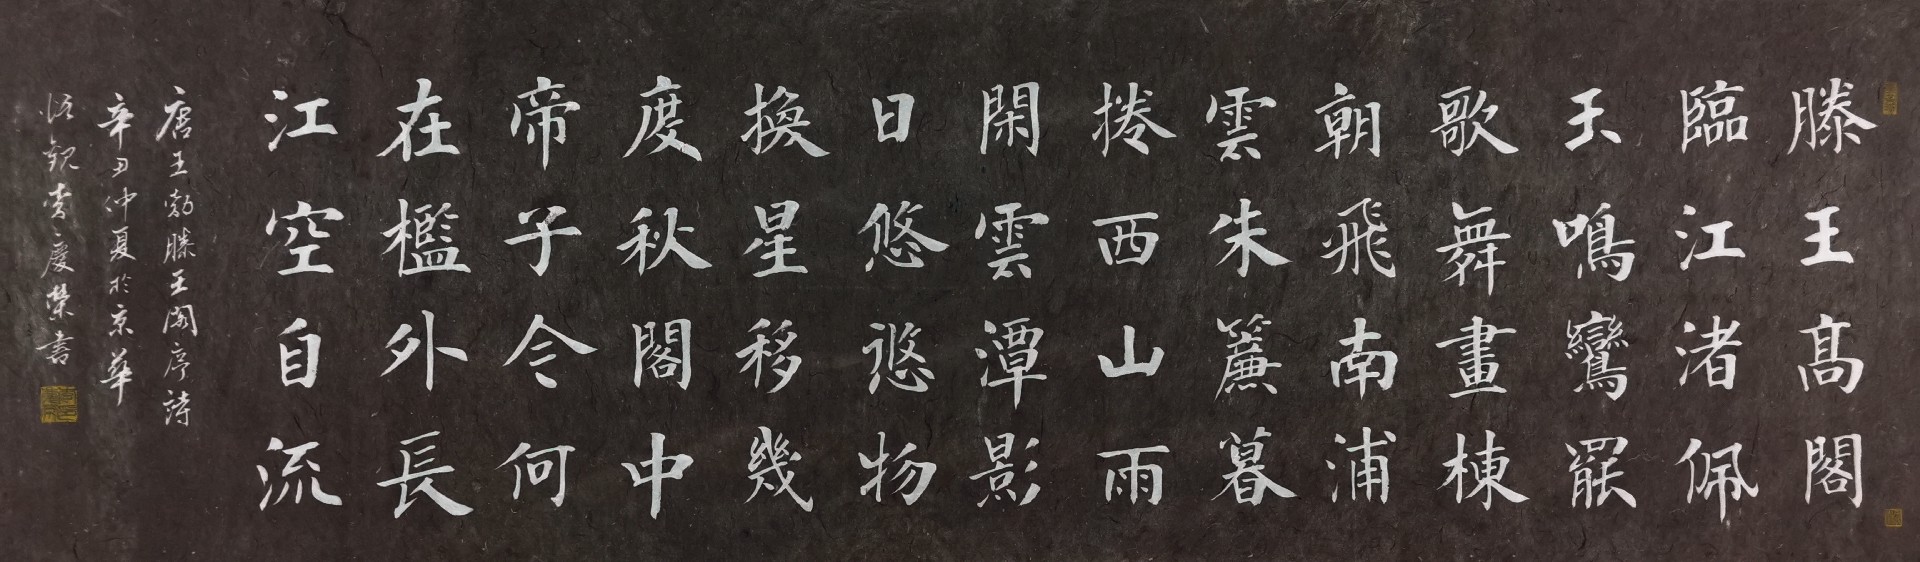 滕王高閣
臨江渚佩
玉鳴鸞罷
歌舞畫棟
朝飛南浦
雲朱簾暮
捲西山雨
閑雲潭影
日悠悠物
換星移幾
度秋閣中
帝子今何
在檻外長
江空自流
唐王勃滕王閣序詩
辛丑仲夏於京華
慶榮書